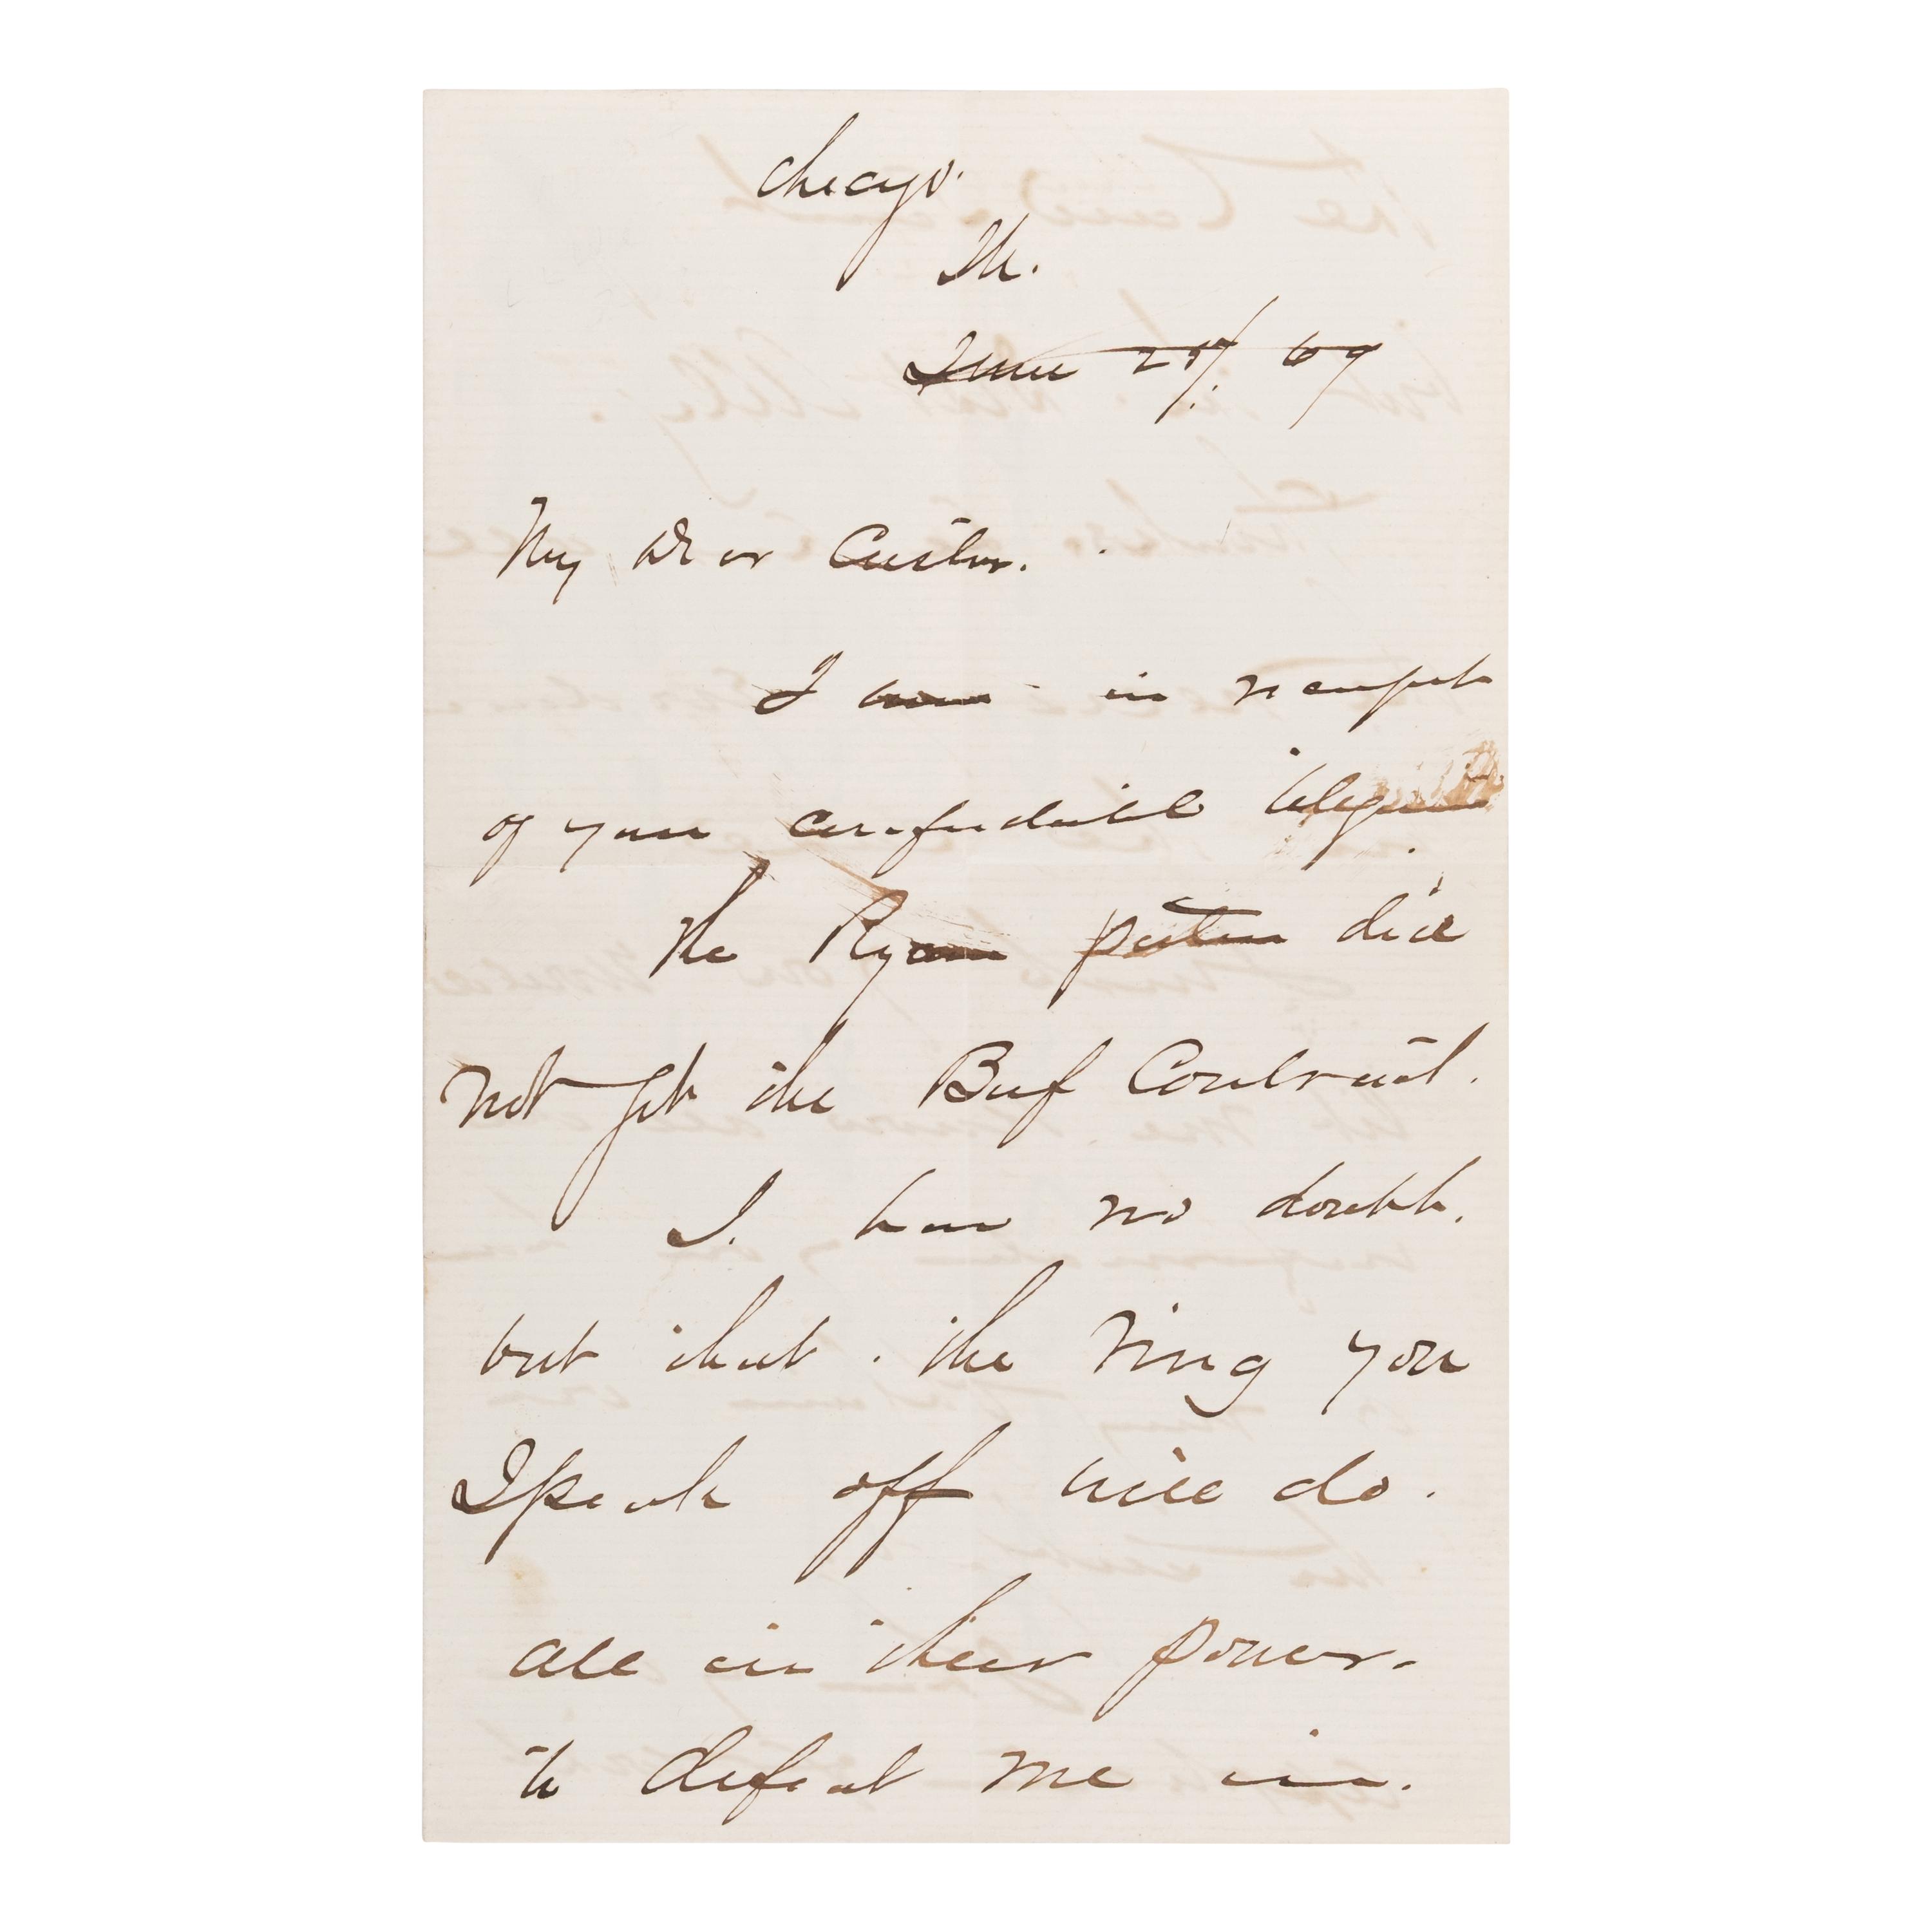 Chicago.
Ill.
June 69
My Dear Custer.
I am in receipt
of your confidential telegram
The Ryan party did
not get the Beef Contract.
I. have no doubt.
but that. the ring you
Speak off will do.
all in their power.
to defeat me in.